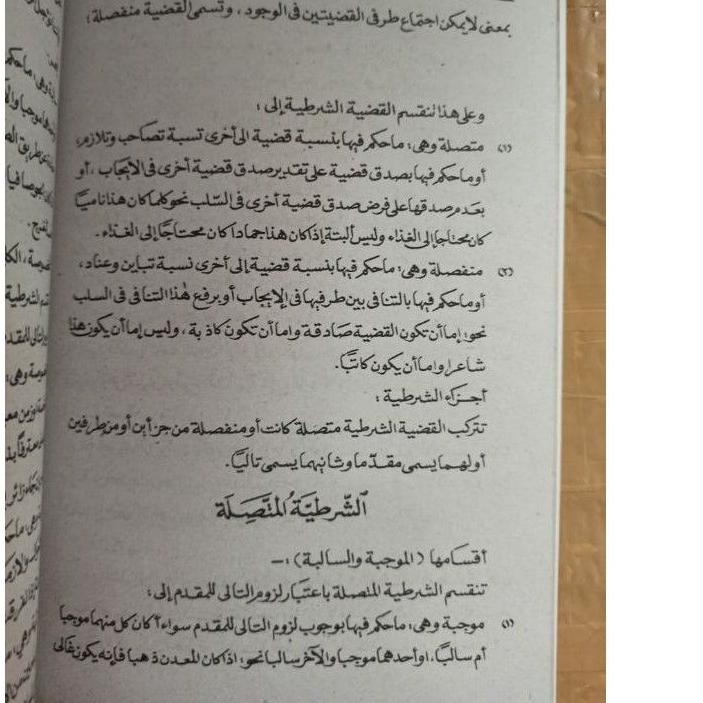 بمعنى لايمكن اجتماع طرفى القضيتين فى الوجود، وتسمى القضية منفصلة:
وعلى هذا تنقسم القضية الشرطية إلى:
(١) متصلة وهى: ماحكم فيها بنسبة قضية الى أخرى نسبة تصاحب وتلازم،
أو ماحكم فيها بصدق قضية على تقدير صدق قضية أخرى فى الايجاب، أو
بعدم صدقها على فرض صدق قضية أخرى فى السّلب نحو كلما كان هذا ناميًا
كان محتاجا إلى الغذاء وليس ألبتة إذا كان هذا جمادا كان محتاجًا إلى الغذاء.
(٢) منفصلة وهى: ماحكم فيها بنسبة قضية إلى أخرى نسبة تباين وعناد،
أو ماحكم فيها بالتنافى بين طرفيها فى الإيجاب أو برفع هذا التنافى فى السلب
نحو: إما أن تكون القضية صادقة واما أن تكون كاذبة، وليس إما أن يكون هذا
شاعرا واما أن يكون كاتبًا.
أجزاء الشرطية:
تتركب القضية الشرطية متصلة كانت أو منفصلة من جزأين أو من طرفين
أولهما يسمى مقدّما وثانيهما يسمى تاليًا.
الشّرطيّةُ المتَّصِلَة
أقسامها (الموجبة والسالبة):-
تنقسم الشرطية المتصلة باعتبار لزوم التالى للمقدم إلى:
(١) موجبة وهى: ماحكم فيها بوجوب لزوم التالى للمقدم سواء أكان كل منهما موجبا
أم سالبًا، او أحدهما موجبا والآخر سالبا نحو: اذا كان المعدن ذهبا فإنه يكون غالى